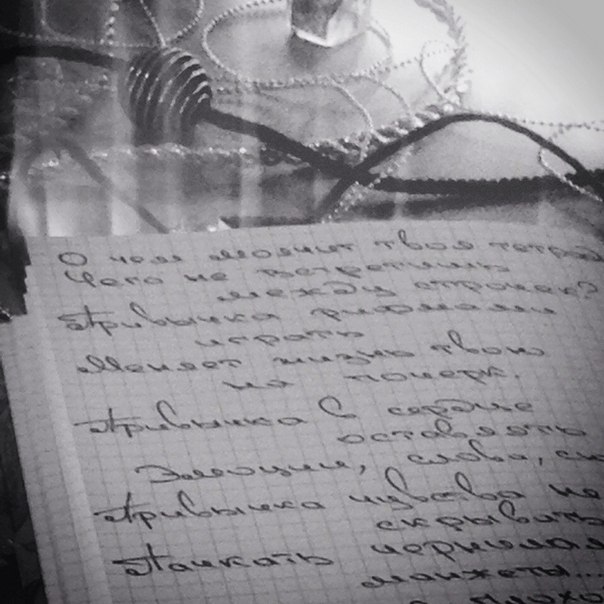 О чем молчит твоя тетрадь
Чего не встретишь
между строчек?
Привычка рифмами
играть
Меняет жизнь твою
на почерк.
Привычка в сердце
оставлять
Эмоции, слова,
Привычка чувства не
скрывать
Пачкать чернилами
манжеты...